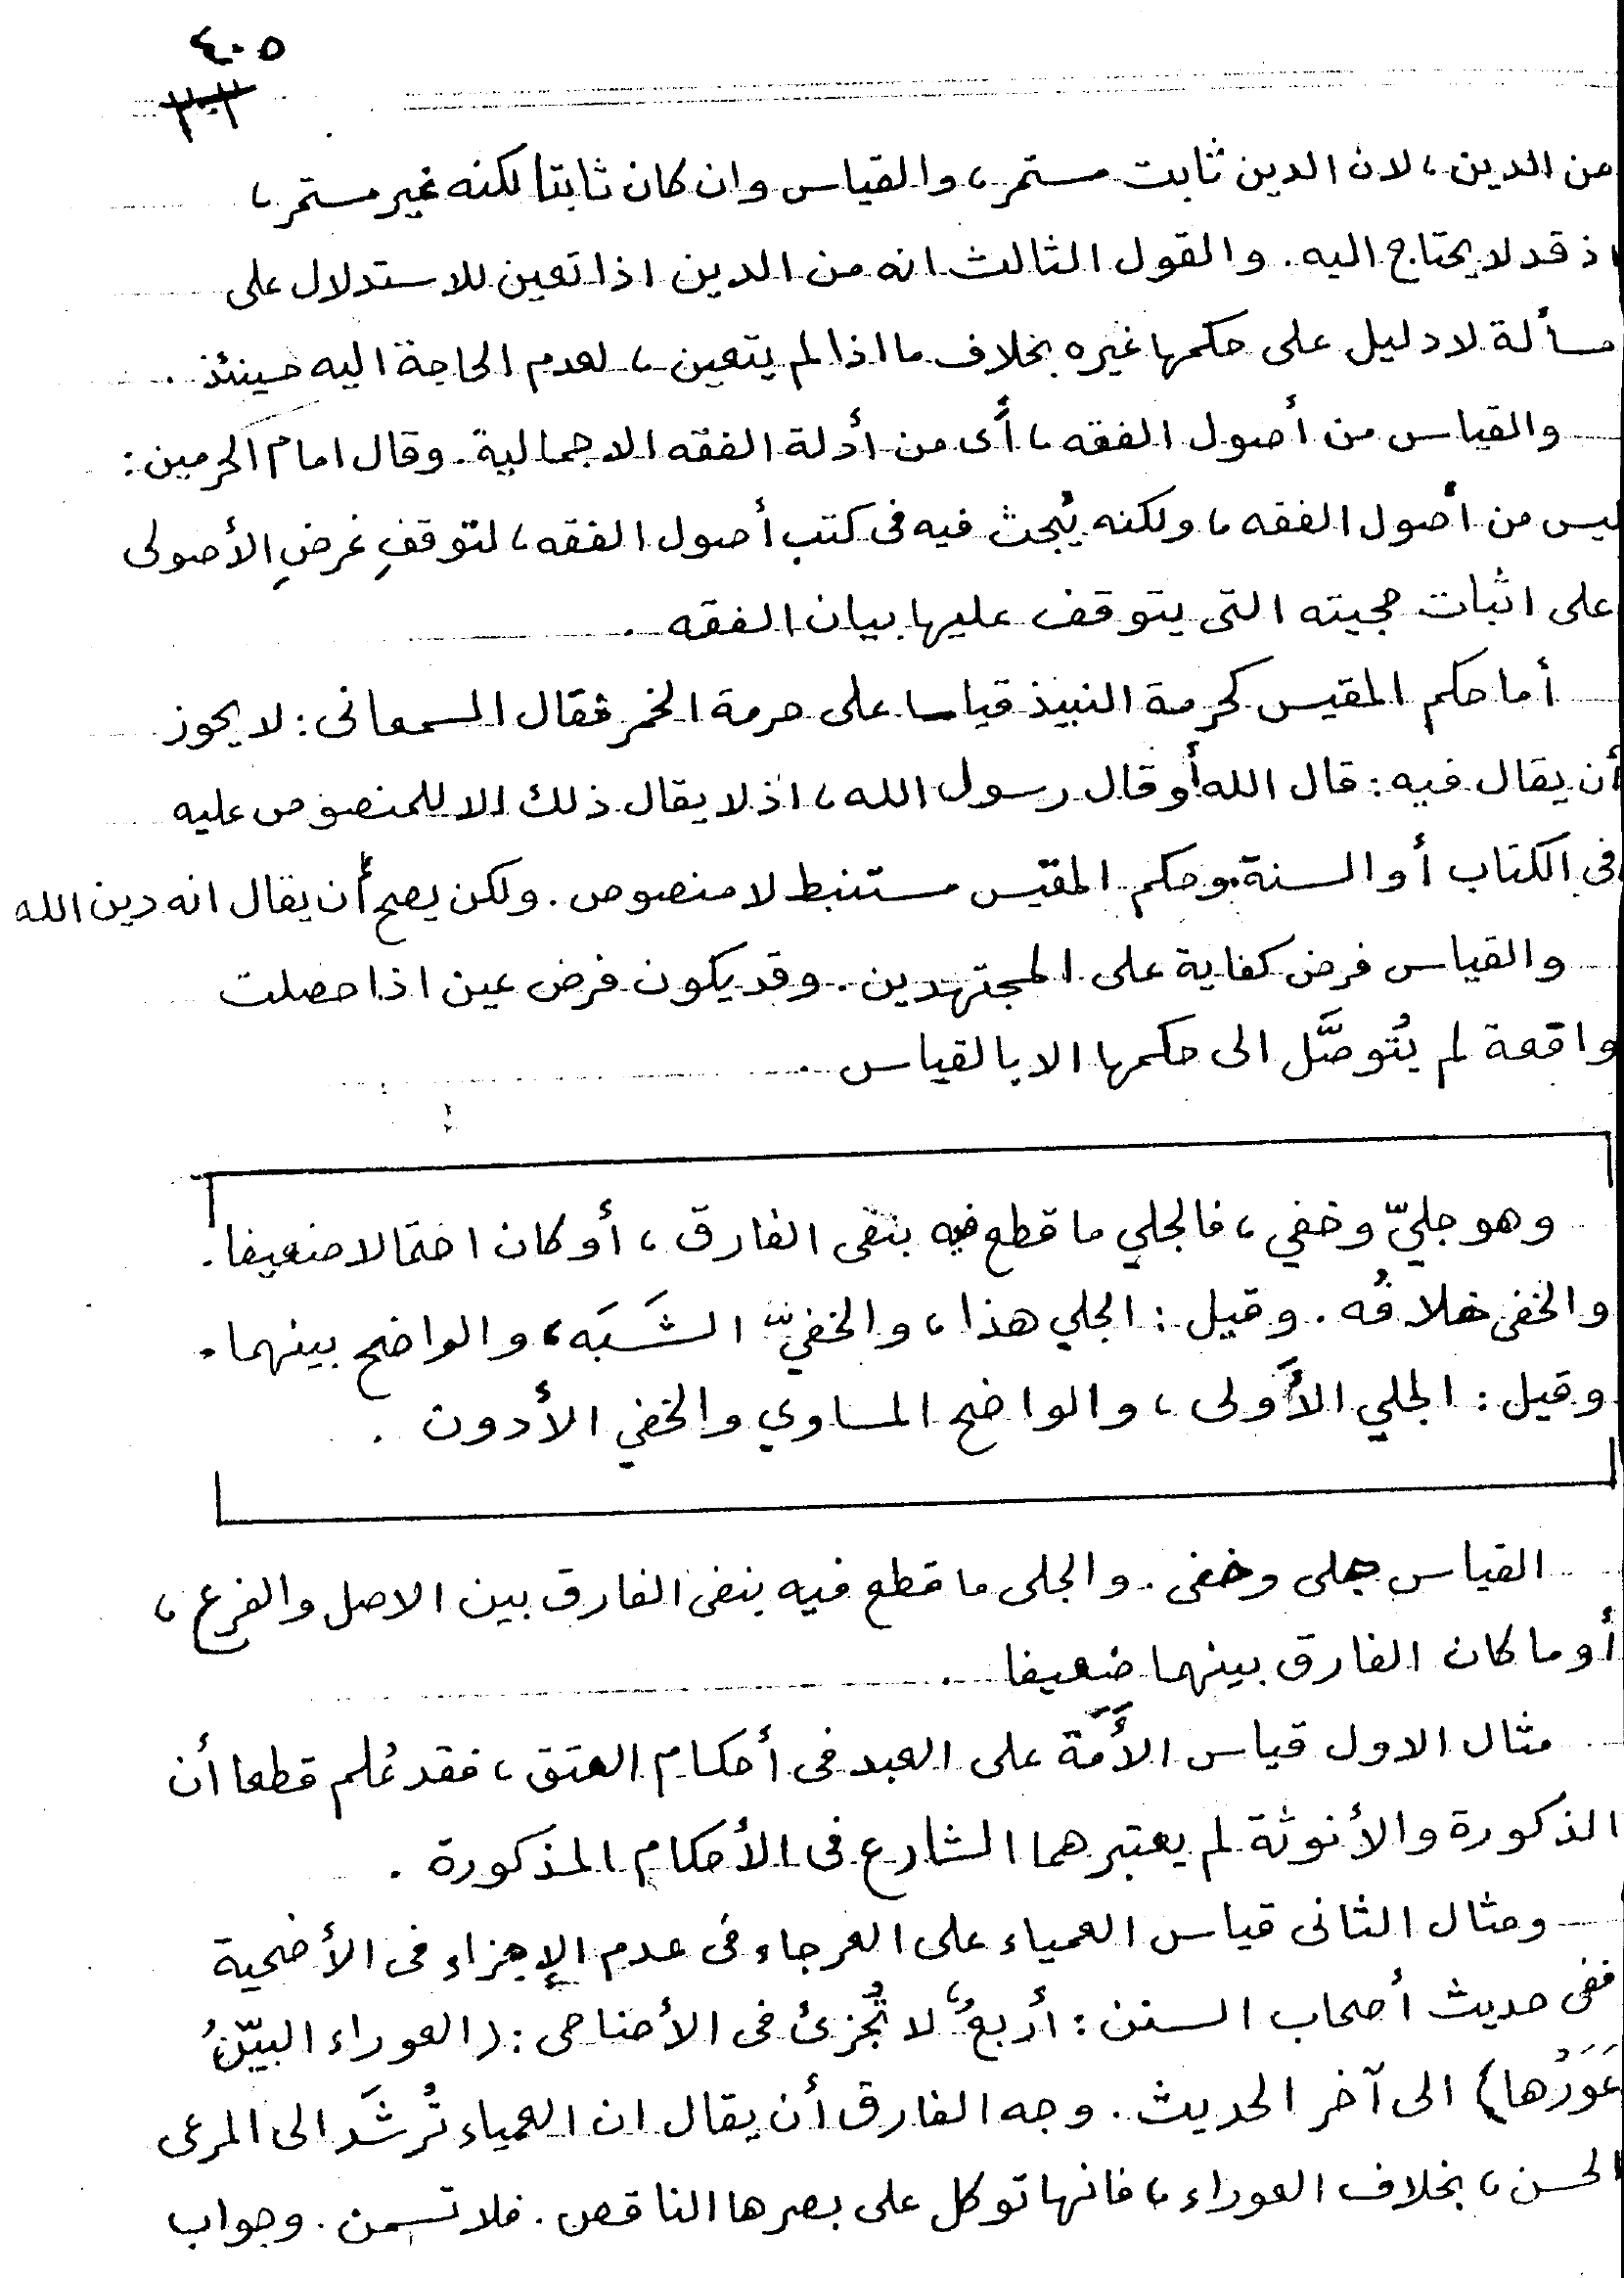 ٤٠٥
من الدين، لان الدين ثابت مستمر، والقياس وان كان ثابتا لكنه غير مستمر،
اذ قد لا يحتاج اليه. والقول الثالث انه من الدين اذا تعين للاستدلال على
مسألة لا دليل على حكمها غيره بخلاف ما اذا لم يتعين، لعدم الحاجة اليه حينئذ.
والقياس من أصول الفقه، أى من أدلة الفقه الاجمالية. وقال امام الحرمين:
ليس من أصول الفقه، ولكنه يُبحث فيه فى كتب أصول الفقه، لتوقفِ غرضِ الأصولى
على اثبات حجيته التى يتوقف عليها بيان الفقه.
أما حكم المقيس كحرمة النبيذ قياسا على حرمة الخمر فقال السمعانى: لا يجوز
أن يقال فيه: قال الله أو قال رسول الله، اذ لا يقال ذلك الا للمنصوص عليه
في الكتاب أو السنة. وحكم المقيس مستنبط لا منصوص. ولكن يصح أن يقال انه دين الله
والقياس فرض كفاية على المجتهدين. وقد يكون فرض عين اذا حصلت
واقعة لم يُتَوصَّل الى حكمها الا بالقياس.
وهو جليّ وخفي، فالجلي ما قطع فيه بنفى الفارق، أو كان احتمالا ضعيفا.
والخفى خلافُه. وقيل: الجلي هذا، والخفيّ الشَبَه، والواضح بينهما.
وقيل: الجلي الأَولى، والواضح المساوي والخفي الأدون.
القياس جلى وخفى. والجلى ما قطع فيه بنفى الفارق بين الاصل والفرع،
أو ما كان الفارق بينهما ضعيفا.
مثال الاول قياس الأَمَة على العبد فى أحكام العتق، فقد عُلم قطعا أن
الذكورة والأنوثة لم يعتبرهما الشارع فى الأحكام المذكورة.
ومثال الثانى قياس العمياء على العرجاء فى عدم الإجزاء فى الأضحية
ففى حديث أصحاب السنن: أربعٌ لا تُجزئ فى الأضاحى: (العوراء البيّنُ
عَوَرُها) الى آخر الحديث. وجه الفارق أن يقال ان العمياء تُرشَد الى المرعى
الحسن، بخلاف العوراء، فانها توكل على بصرها الناقص. فلا تسمن. وجواب